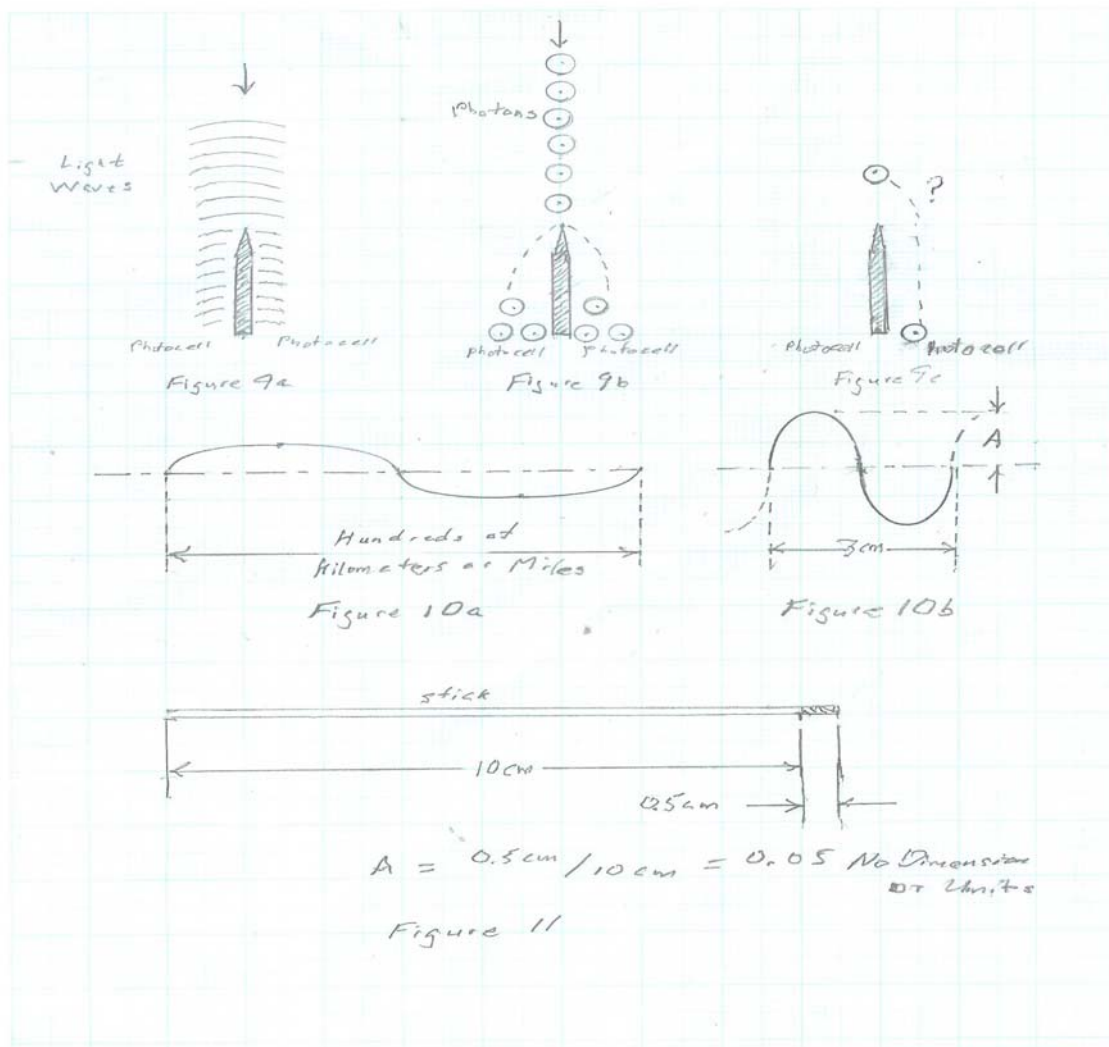 Photons
Light
Waves
?
Photocell Photocell
Figure 9a
Photocell Photocell
Figure 9b
Photocell Photocell
Figure 9c
A
Hundreds of
Kilometers or Miles
Figure 10a
3cm
Figure 10b
stick
10cm
0.5cm
A = 0.5cm/10cm = 0.05 No Dimension
or Units
Figure 11